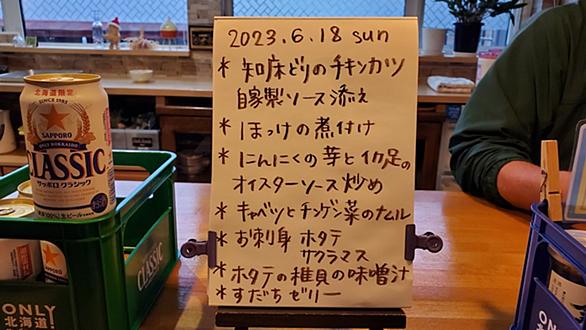 2023.6.18 sun
* 知床どりのチキンカツ
自家製ソース添え
* ほっけの煮付け
* にんにくの芽とイカ足の
オイスターソース炒め
* キャベツとチンゲン菜のナムル
* お刺身 ホタテ
サクラマス
* ホタテの稚貝の味噌汁
* すだちゼリー
北海道限定
SINCE 1985
SAPPORO
ONLY HOKKAIDO
CLASSIC
サッポロ クラシック
CLASSIC
ONLY
北海道!
ONLY
北海道